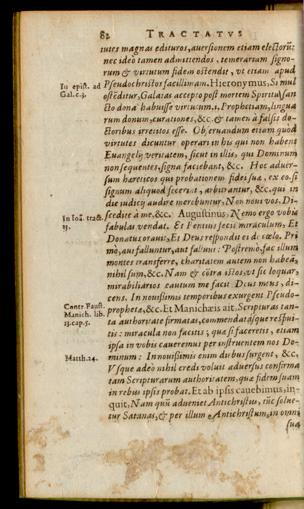 82 TRACTATVS
tutes magnas edituros, auersionem etiam electorū:
nec ideo tamen admittendos. temerarium signo-
rum & virtutum fidem ostendit, vt etiam apud
In epist. ad
Gal. c.3.
Pseudochristos facillimam. Hieronymus, Simul
ostēditur, Galatas accepto post mortem Spiritu san
cto dona habuisse virtutum, i. Prophetiam, lingua
rum donum, curationes, &c. & tamen à falsis do-
ctoribus irretitos esse. Obseruandum etiam quod
virtutes dicuntur operari in his qui non habent
Euangelij veritatem, sicut in illis, qui Dominum
non sequentes, signa faciebant, &c. Hoc aduer-
sum hæreticos qui probationem fidei suæ, ex eo, si
signum aliquod fecerint, arbitrantur, &c. qui in
die iudicij audire merebuntur, Non noui vos. Di-
In Ioā. tra&.
13.
scedite à me, &c. Augustinus, Nemo ergo vobis
fabulas vendat. Et Pontius fecit miraculum, Et
Donatus orauit, Et Deus respondit ei de cælo. Pri
mò, aut falluntur, aut fallunt: Postremò, fac illum
montes transferre, charitatem autem non habeā,
nihil sum, &c. Nam & cōtra istos, vt sic loquar,
mirabiliarios cautum me fecit Deus meus, di-
cens. In nouißimis temporibus exurgent Pseudo-
Contr. Faust.
Manich. lib.
13. cap. 5.
prophetæ, &c. Et Manichæis ait. Scripturas tan-
ta authoritate firmatas, commendatasque respui-
tis: miracula non facitis; qua si faceretis, etiam
ipsa in vobis caueremus per instruentem nos Do-
Matth. 24.
minum: In nouißimis enim diebus surgent, &c.
Vsque adeò nihil credi voluit aduersus confirma
tam Scripturarum authoritatem, quæ fidem suam
in rebus ipsis probat. Et ab ipsis cauebimus, in-
quit, Nam quū adueniet Antichristus, tūc solue-
tur Satanas, & per illum Antichristum, in omni
sua